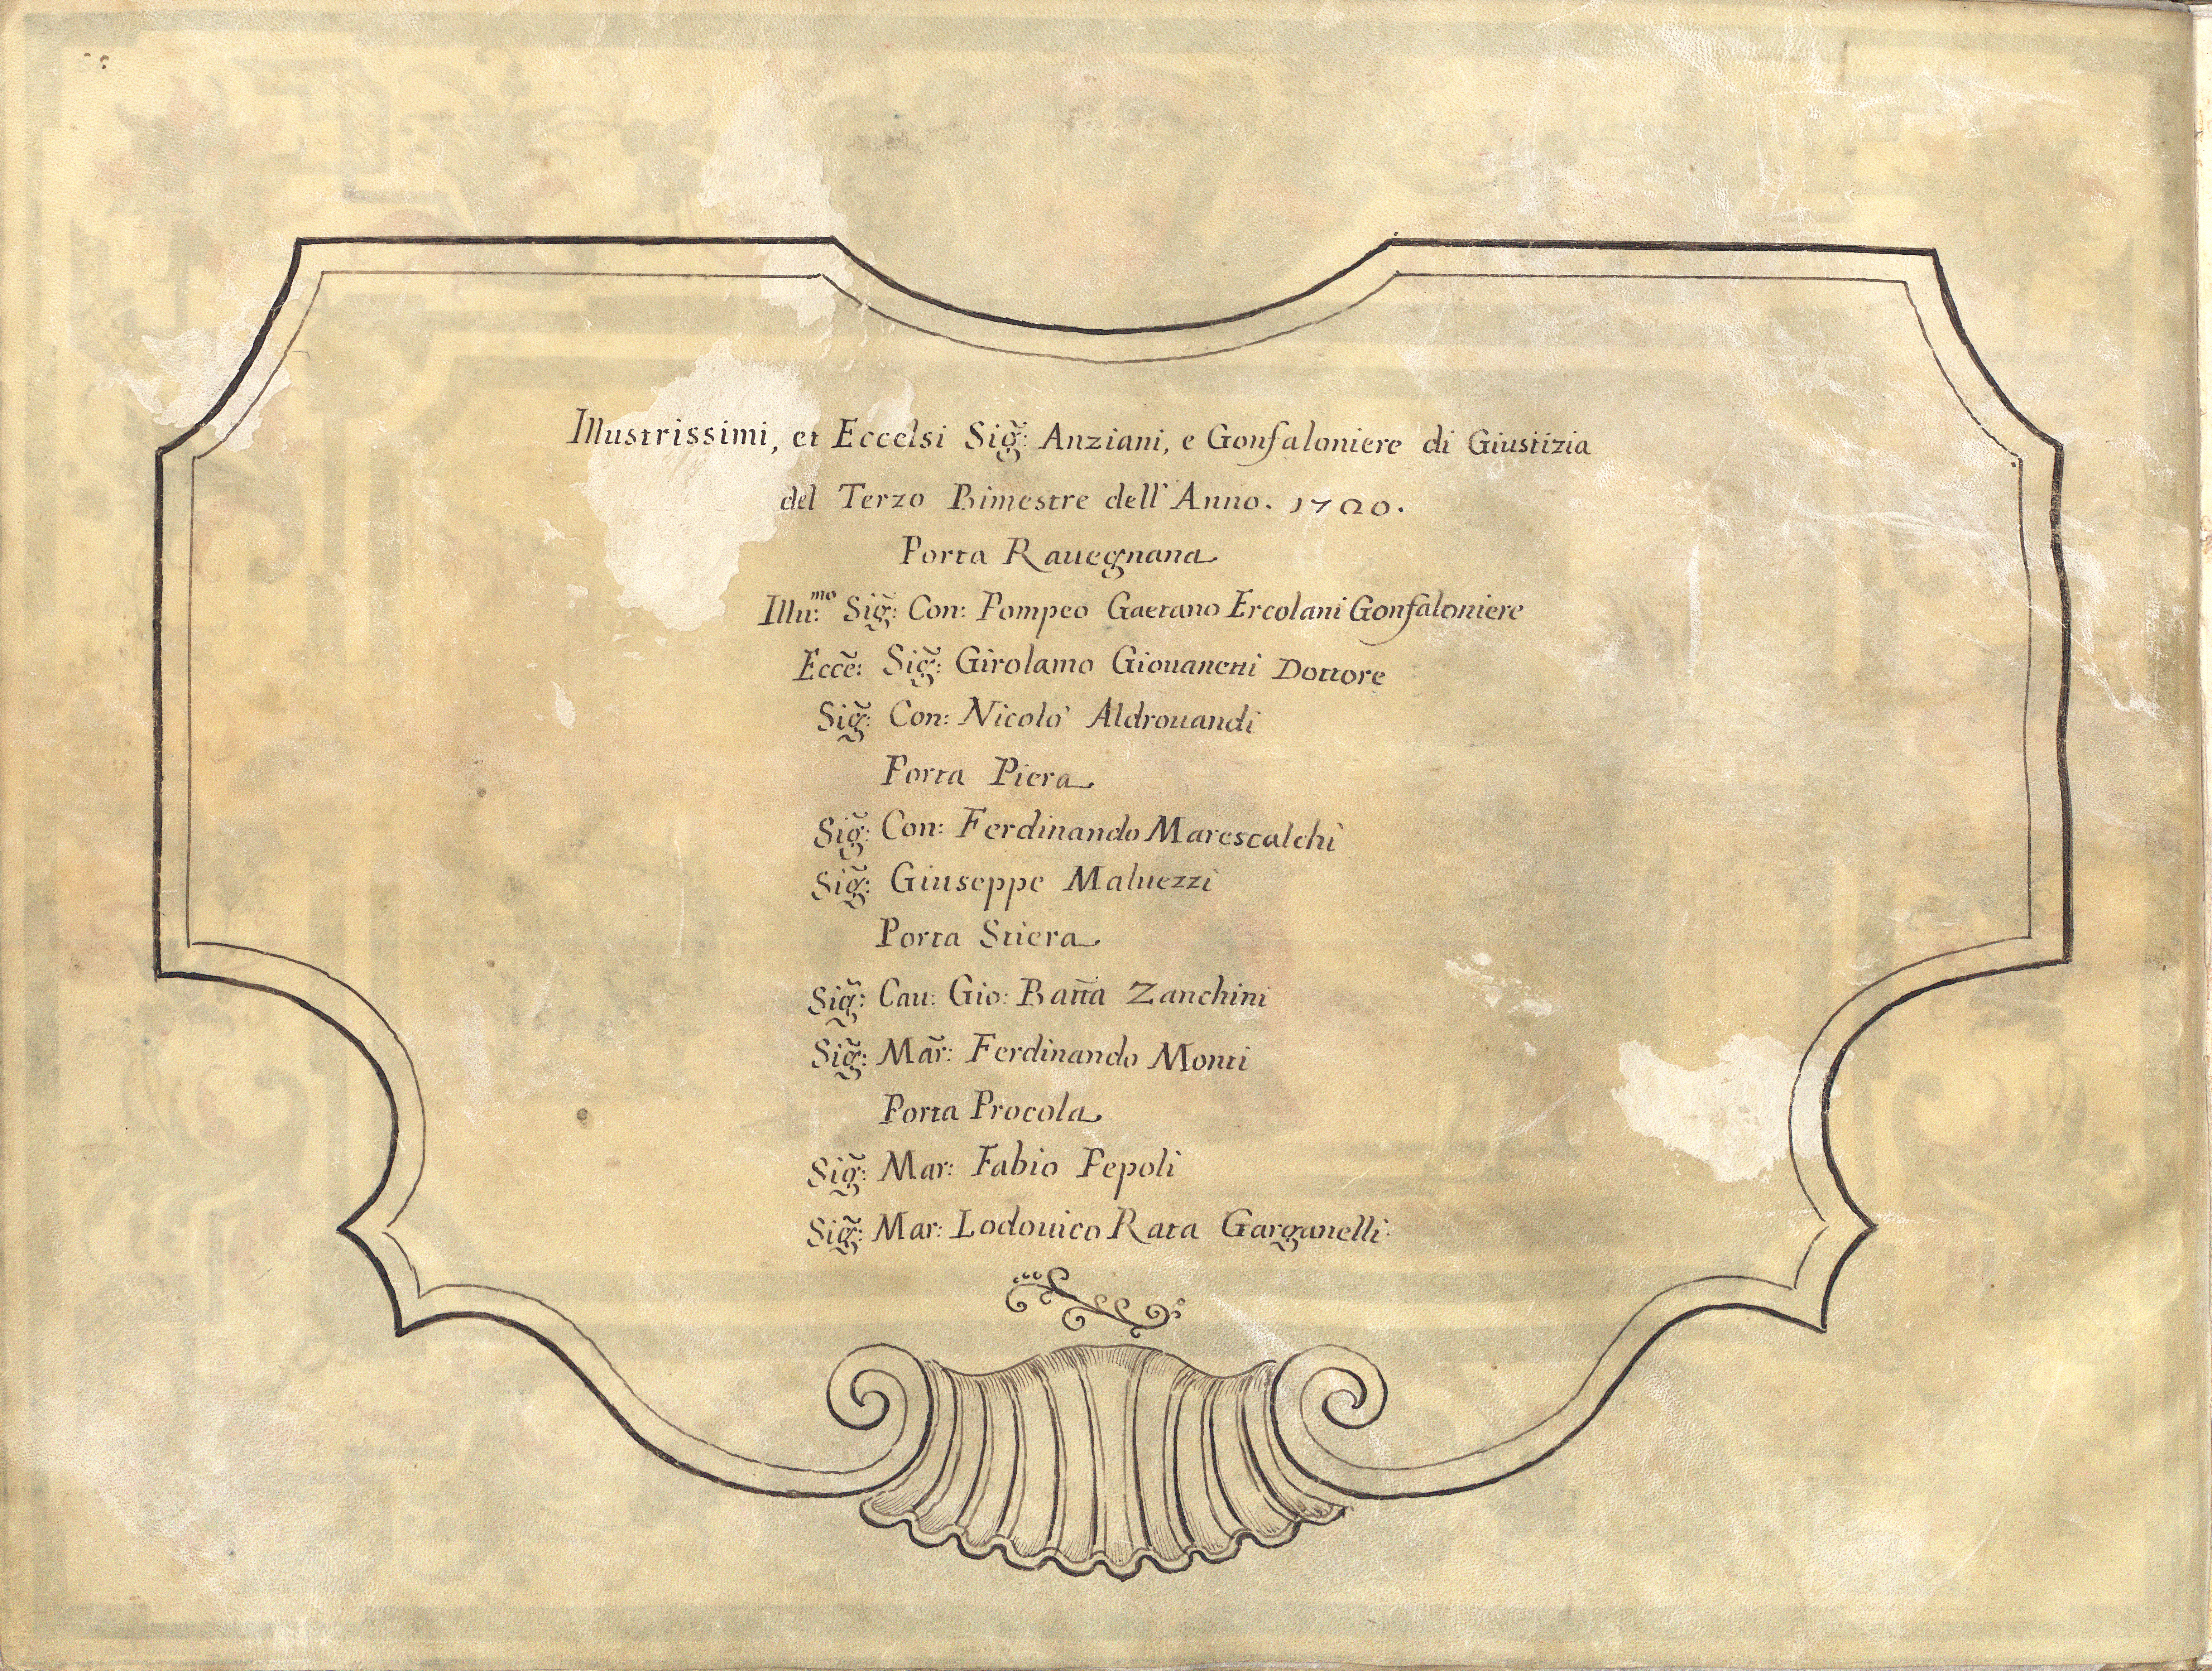 Illustrissimi, et Eccelsi Sig̃: Anziani, e Gonfaloniere di Giustizia
del Terzo Bimestre dell'Anno. 1700.
Porta Rauegnana
Illu:ᵐᵒ Sig̃: Con: Pompeo Gaetano Ercolani Gonfaloniere
Ecc̃e: Sig̃: Girolamo Giouanetti Dottore
Sig̃: Con: Nicolò Aldrouandi
Porta Piera
Sig̃: Con: Ferdinando Marescalchi
Sig̃: Giuseppe Maluezzi
Porta Stiera
Sig̃: Cau: Gio: Batt̃a Zanchini
Sig̃: Mar̃: Ferdinando Monti
Porta Procola
Sig̃: Mar: Fabio Pepoli
Sig̃: Mar: Lodouico Rata Garganelli